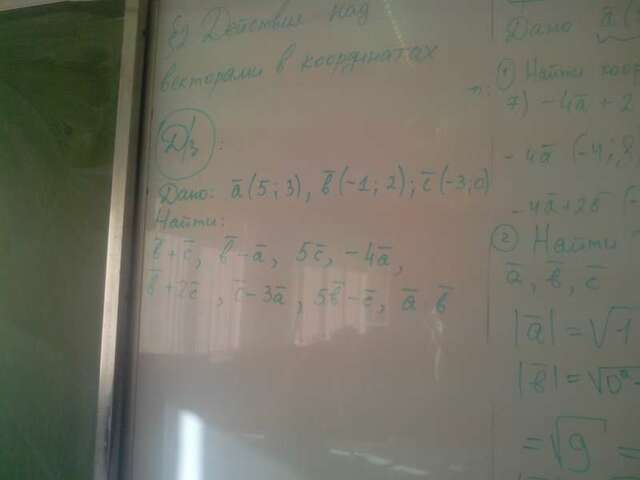 Б) Действия над
векторами в координатах
Д/З :
Дано: a̅ (5; 3), b̅ (-1; 2); c̅ (-3; 0)
Найти:
b̅ + c̅, b̅ - a̅, 5c̅, -4a̅,
b̅ + 2c̅, c̅ - 3a̅, 5b̅ - c̅, a̅ b̅
Дано a̅ (
① Найти коор
7) -4a̅ + 2
- 4a̅ (-4; 8
- 4a̅ + 2b̅ (-
② Найти
a̅, b̅, c̅
|a̅| = √1
|b̅| = √0²
= √9 =